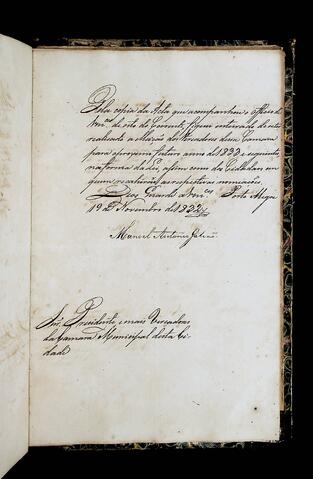 Pela copia da Acta que acompanhou o Officio de
Vm.ces de oito do Corrente, fiquei inteirado de estar
realisada a elleição dos Vereadores dessa Camara
para o proximo futuro anno de 1833 e seguintes
na forma da Lei, assim como dos Cidadãos em
quem recahirão as respectivas nomeações.
Deos Guarde a Vm.ces Porto Alegre
19 de Novembro de 1832
Manoel Antonio Galvão
Snr. Presidente, e mais Vereadores
da Camara Municipal desta Ci-
dade